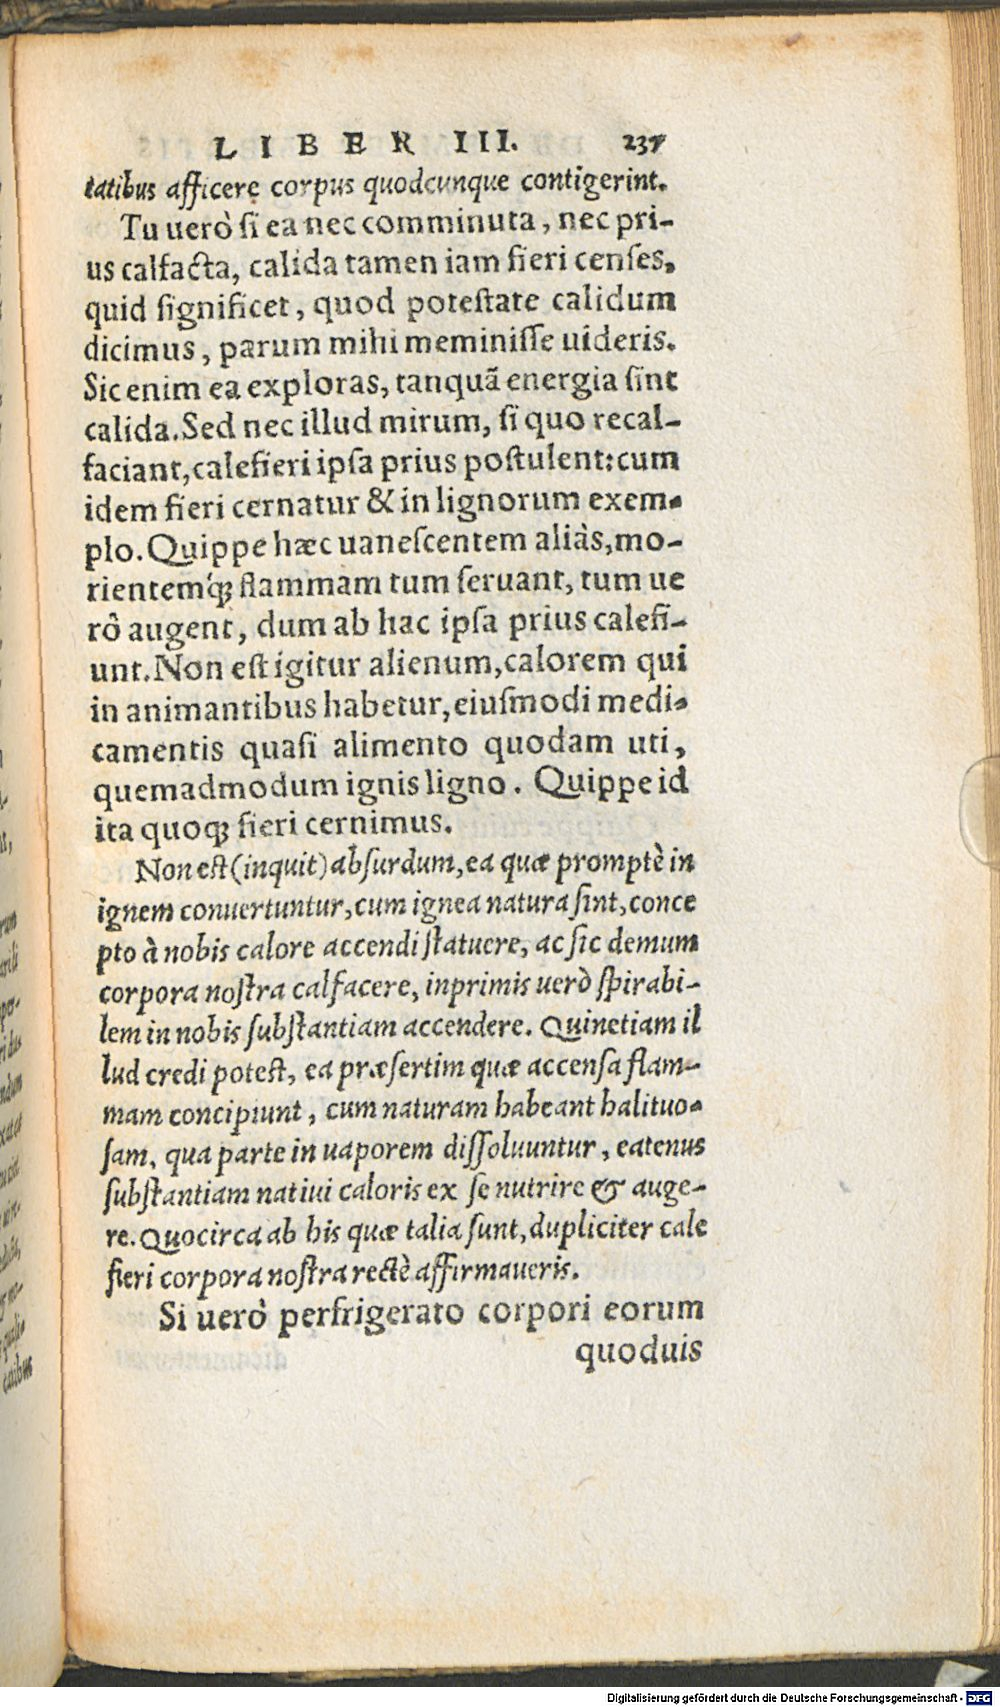 LIBER III. 237
tatibus afficere corpus quodcunque contigerint.
Tu uerò si ea nec comminuta, nec pri-
us calfacta, calida tamen iam fieri censes,
quid significet, quod potestate calidum
dicimus, parum mihi meminisse uideris.
Sic enim ea exploras, tanquã energia sint
calida. Sed nec illud mirum, si quo recal-
faciant, calefieri ipsa prius postulent: cum
idem fieri cernatur & in lignorum exem-
plo. Quippe hæc uanescentem aliàs, mo-
rientemq́; flammam tum seruant, tum ue
rò augent, dum ab hac ipsa prius calefi-
unt. Non est igitur alienum, calorem qui
in animantibus habetur, eiusmodi medi-
camentis quasi alimento quodam uti,
quemadmodum ignis ligno. Quippe id
ita quoq; fieri cernimus.
Non est (inquit) absurdum, ea quæ promptè in
ignem conuertuntur, cum ignea natura sint, conce
pto à nobis calore accendi statuere, ac sic demum
corpora nostra calfacere, inprimis uerò spirabi-
lem in nobis substantiam accendere. Quinetiam il
lud credi potest, ea præsertim quæ accensa flam-
mam concipiunt, cum naturam habeant halituo-
sam, qua parte in uaporem dissoluuntur, eatenus
substantiam natiui caloris ex se nutrire & auge-
re. Quocirca ab his quæ talia sunt, dupliciter cale
fieri corpora nostra rectè affirmaueris.
Si uerò perfrigerato corpori eorum
quoduis
Digitalisierung gefördert durch die Deutsche Forschungsgemeinschaft - DFG